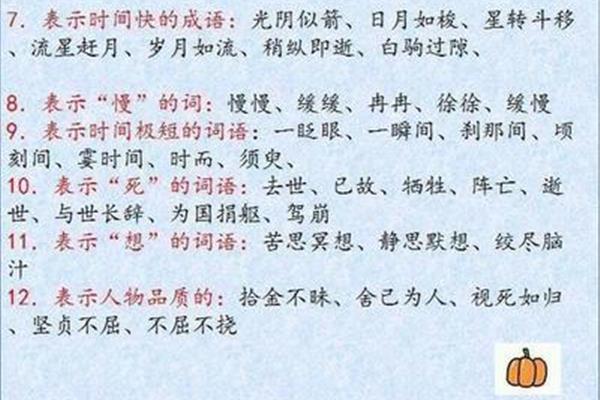 7. 表示时间快的成语：光阴似箭、日月如梭、星转斗移
、流星赶月、岁月如流、稍纵即逝、白驹过隙、
8. 表示“慢”的词：慢慢、缓缓、冉冉、徐徐、缓慢
9. 表示时间极短的词语：一眨眼、一瞬间、刹那间、顷
刻间、霎时间、时而、须臾、
10. 表示“死”的词语：去世、已故、牺牲、阵亡、逝
世、与世长辞、为国捐躯、驾崩
11. 表示“想”的词语：苦思冥想、静思默想、绞尽脑
汁
12. 表示人物品质的：拾金不昧、舍己为人、视死如归
、坚贞不屈、不屈不挠